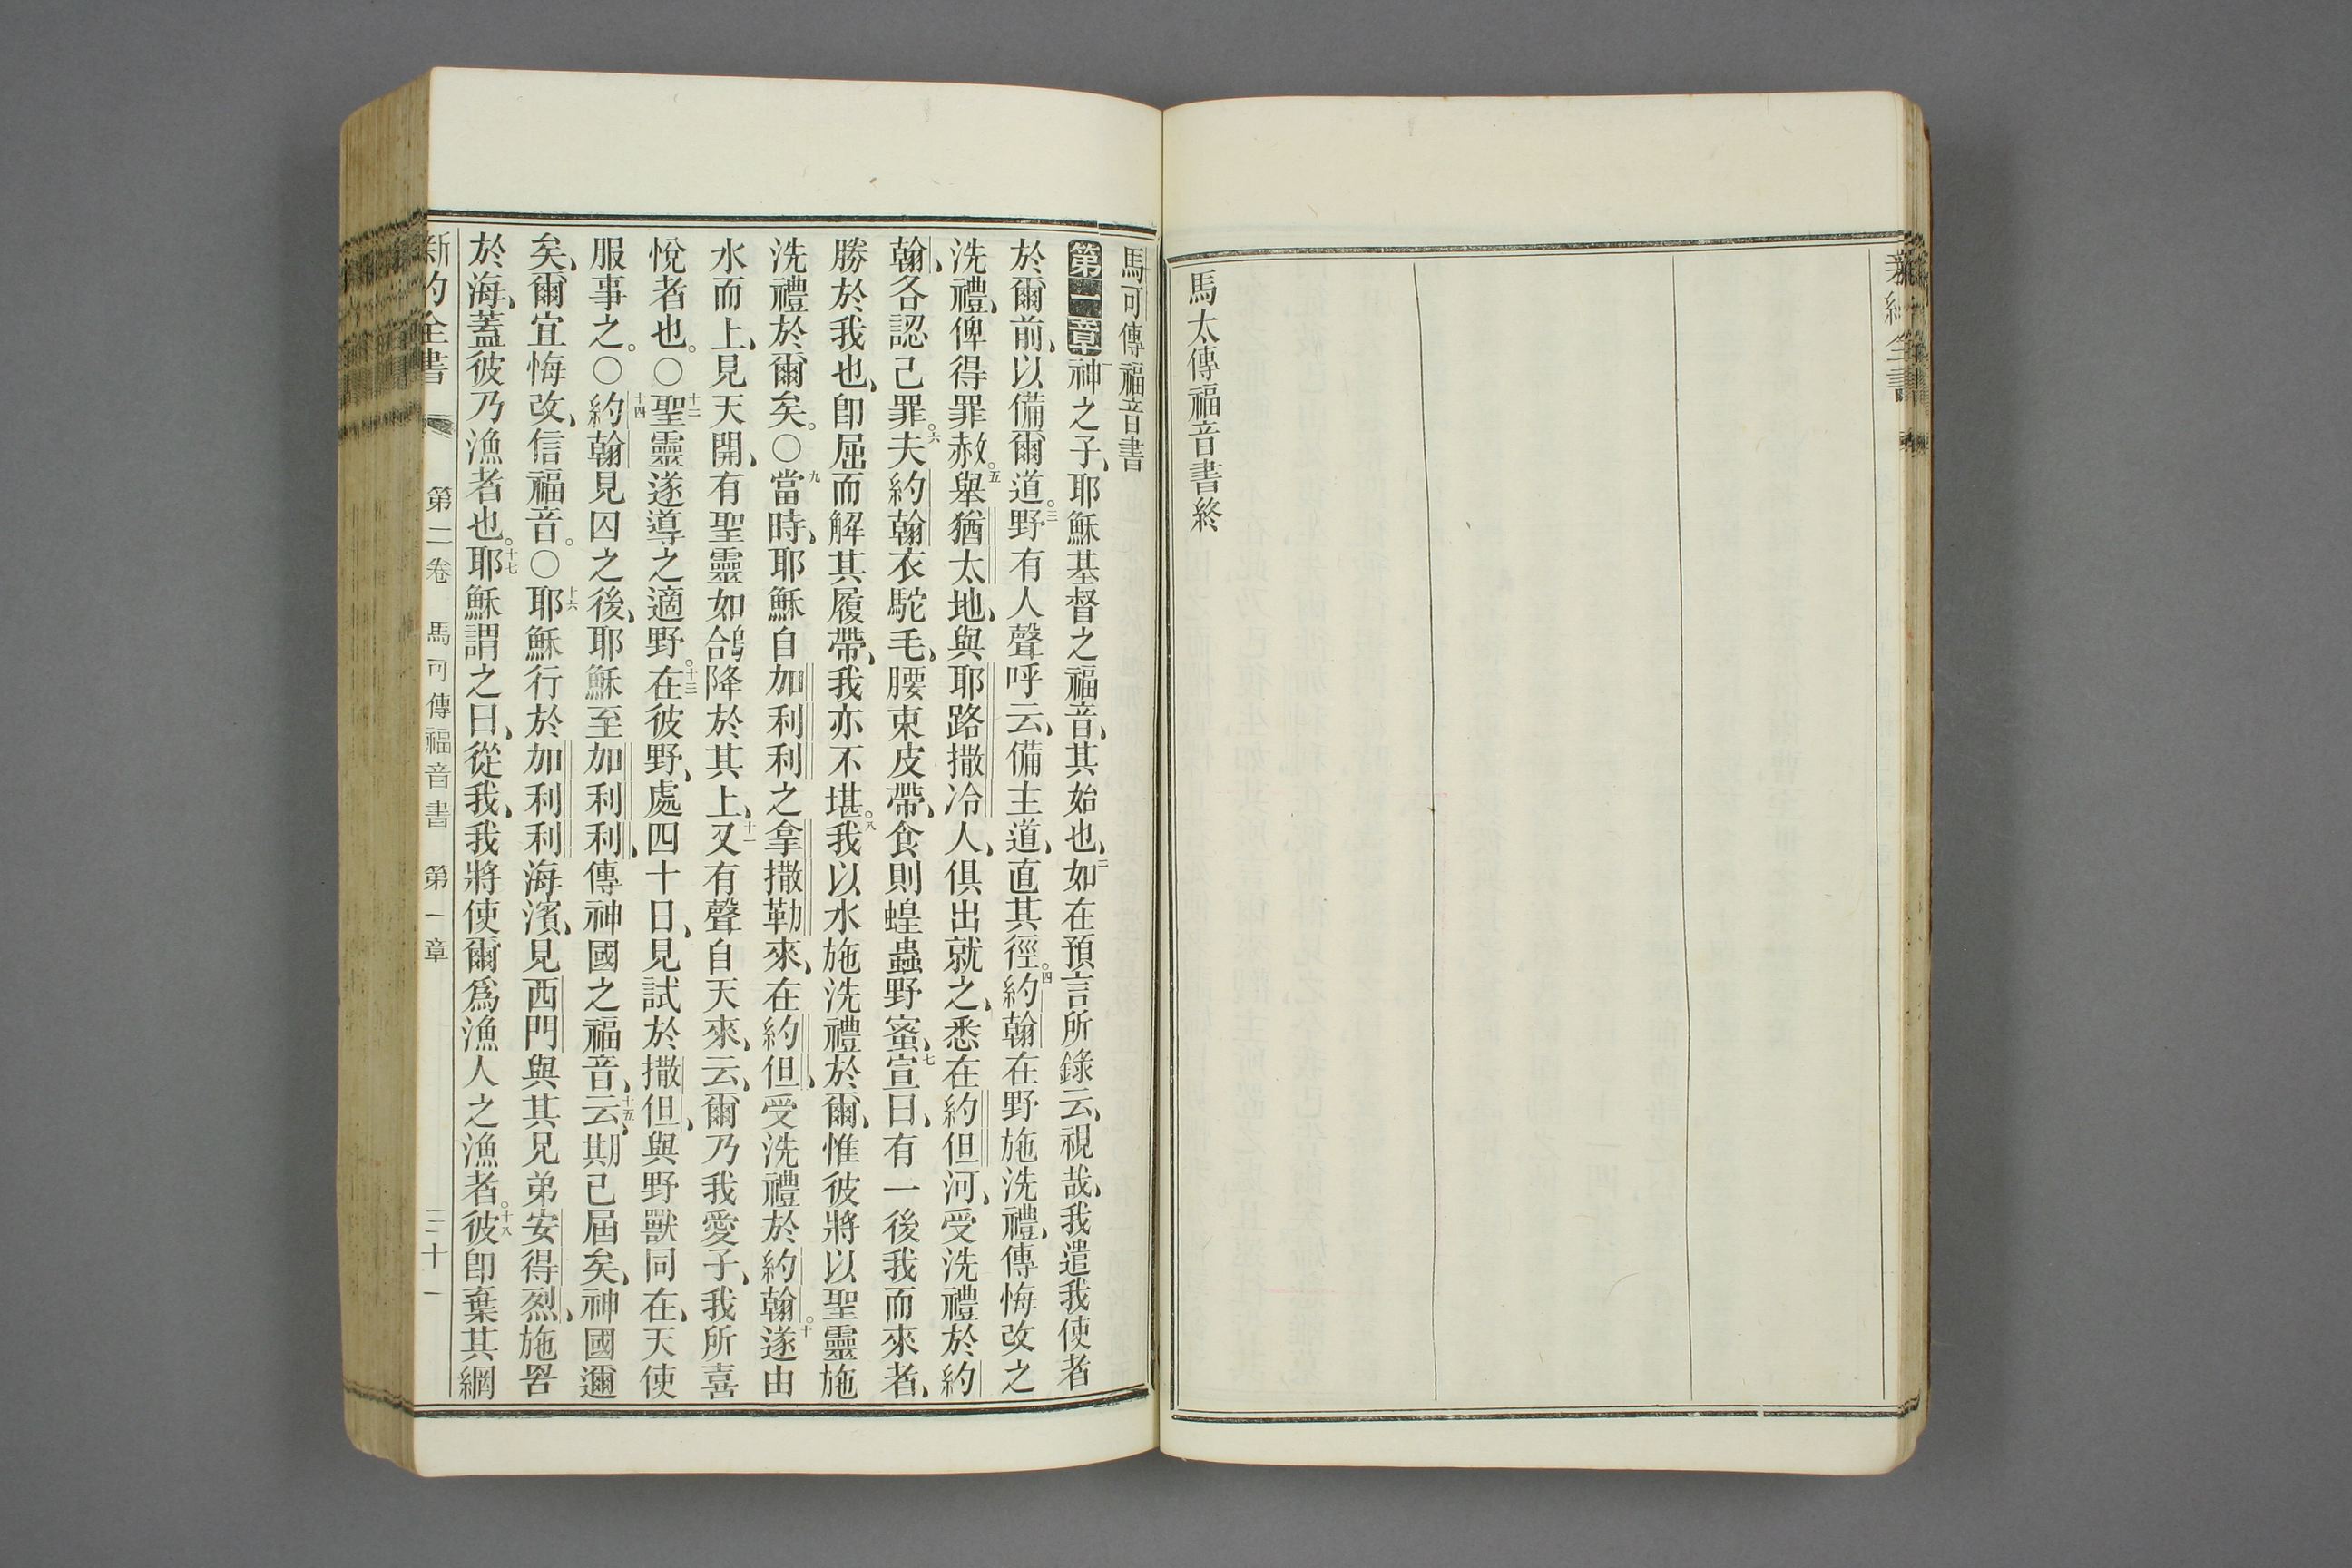 新約全書
馬太傳福音書終
馬可傳福音書
第一章一神之子、耶穌基督之福音、其始也、二如在預言所錄云、視哉、我遣我使者
於爾前、以備爾道。三野有人聲呼云、備主道、直其徑。四約翰在野施洗禮、傳悔改之
洗禮、俾得罪赦。五舉猶太地、與耶路撒冷人、俱出就之、悉在約但河、受洗禮於約
翰、各認己罪。六夫約翰衣駝毛、腰束皮帶、食則蝗蟲野蜜、七宣曰、有一後我而來者、
勝於我也、卽屈而解其履帶、我亦不堪。八我以水施洗禮於爾、惟彼將以聖靈施
洗禮於爾矣。○九當時、耶穌自加利利之拿撒勒來、在約但、受洗禮於約翰。十遂由
水而上、見天開、有聖靈如鴿降於其上、十一又有聲自天來、云、爾乃我愛子、我所喜
悅者也。○十二聖靈遂導之適野。十三在彼野、處四十日、見試於撒但、與野獸同在、天使
服事之。○十四約翰見囚之後、耶穌至加利利、傳神國之福音、十五云、期已屆矣、神國邇
矣、爾宜悔改、信福音。○十六耶穌行於加利利海濱、見西門與其兄弟安得烈、施罟
於海、蓋彼乃漁者也。十七耶穌謂之曰、從我、我將使爾爲漁人之漁者。十八彼卽棄其網
新約全書 第二卷 馬可傳福音書 第一章 三十一